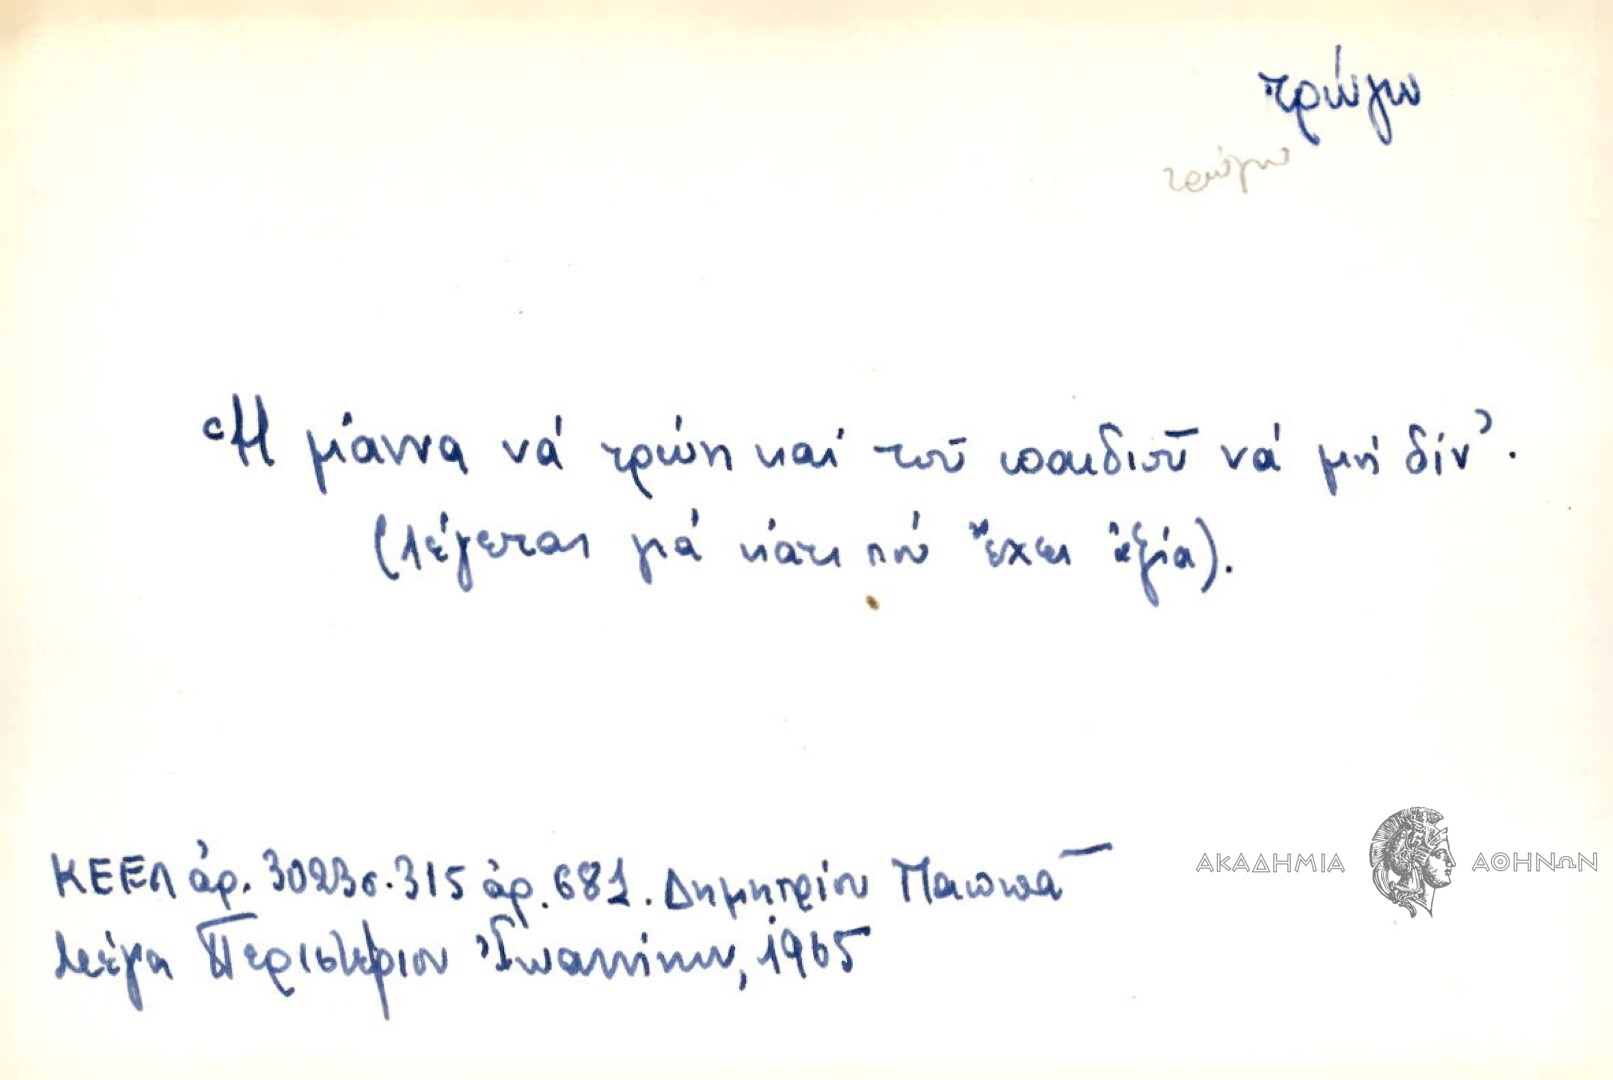 τρώγω
τρώγω
Ἡ μάννα νά τρώη καί τοῦ παιδιοῦ νά μή δίν'.
(λέγεται γιά κάτι πού ἔχει ἀξία).
ΚΕΕΛ ἀρ. 3023 σ. 315 ἀρ. 681. Δημητρίου Παππᾶ
Μέγα Περιστέριον Ἰωαννίνων, 1965
ΑΚΑΔΗΜΙΑ ΑΘΗΝΩΝ